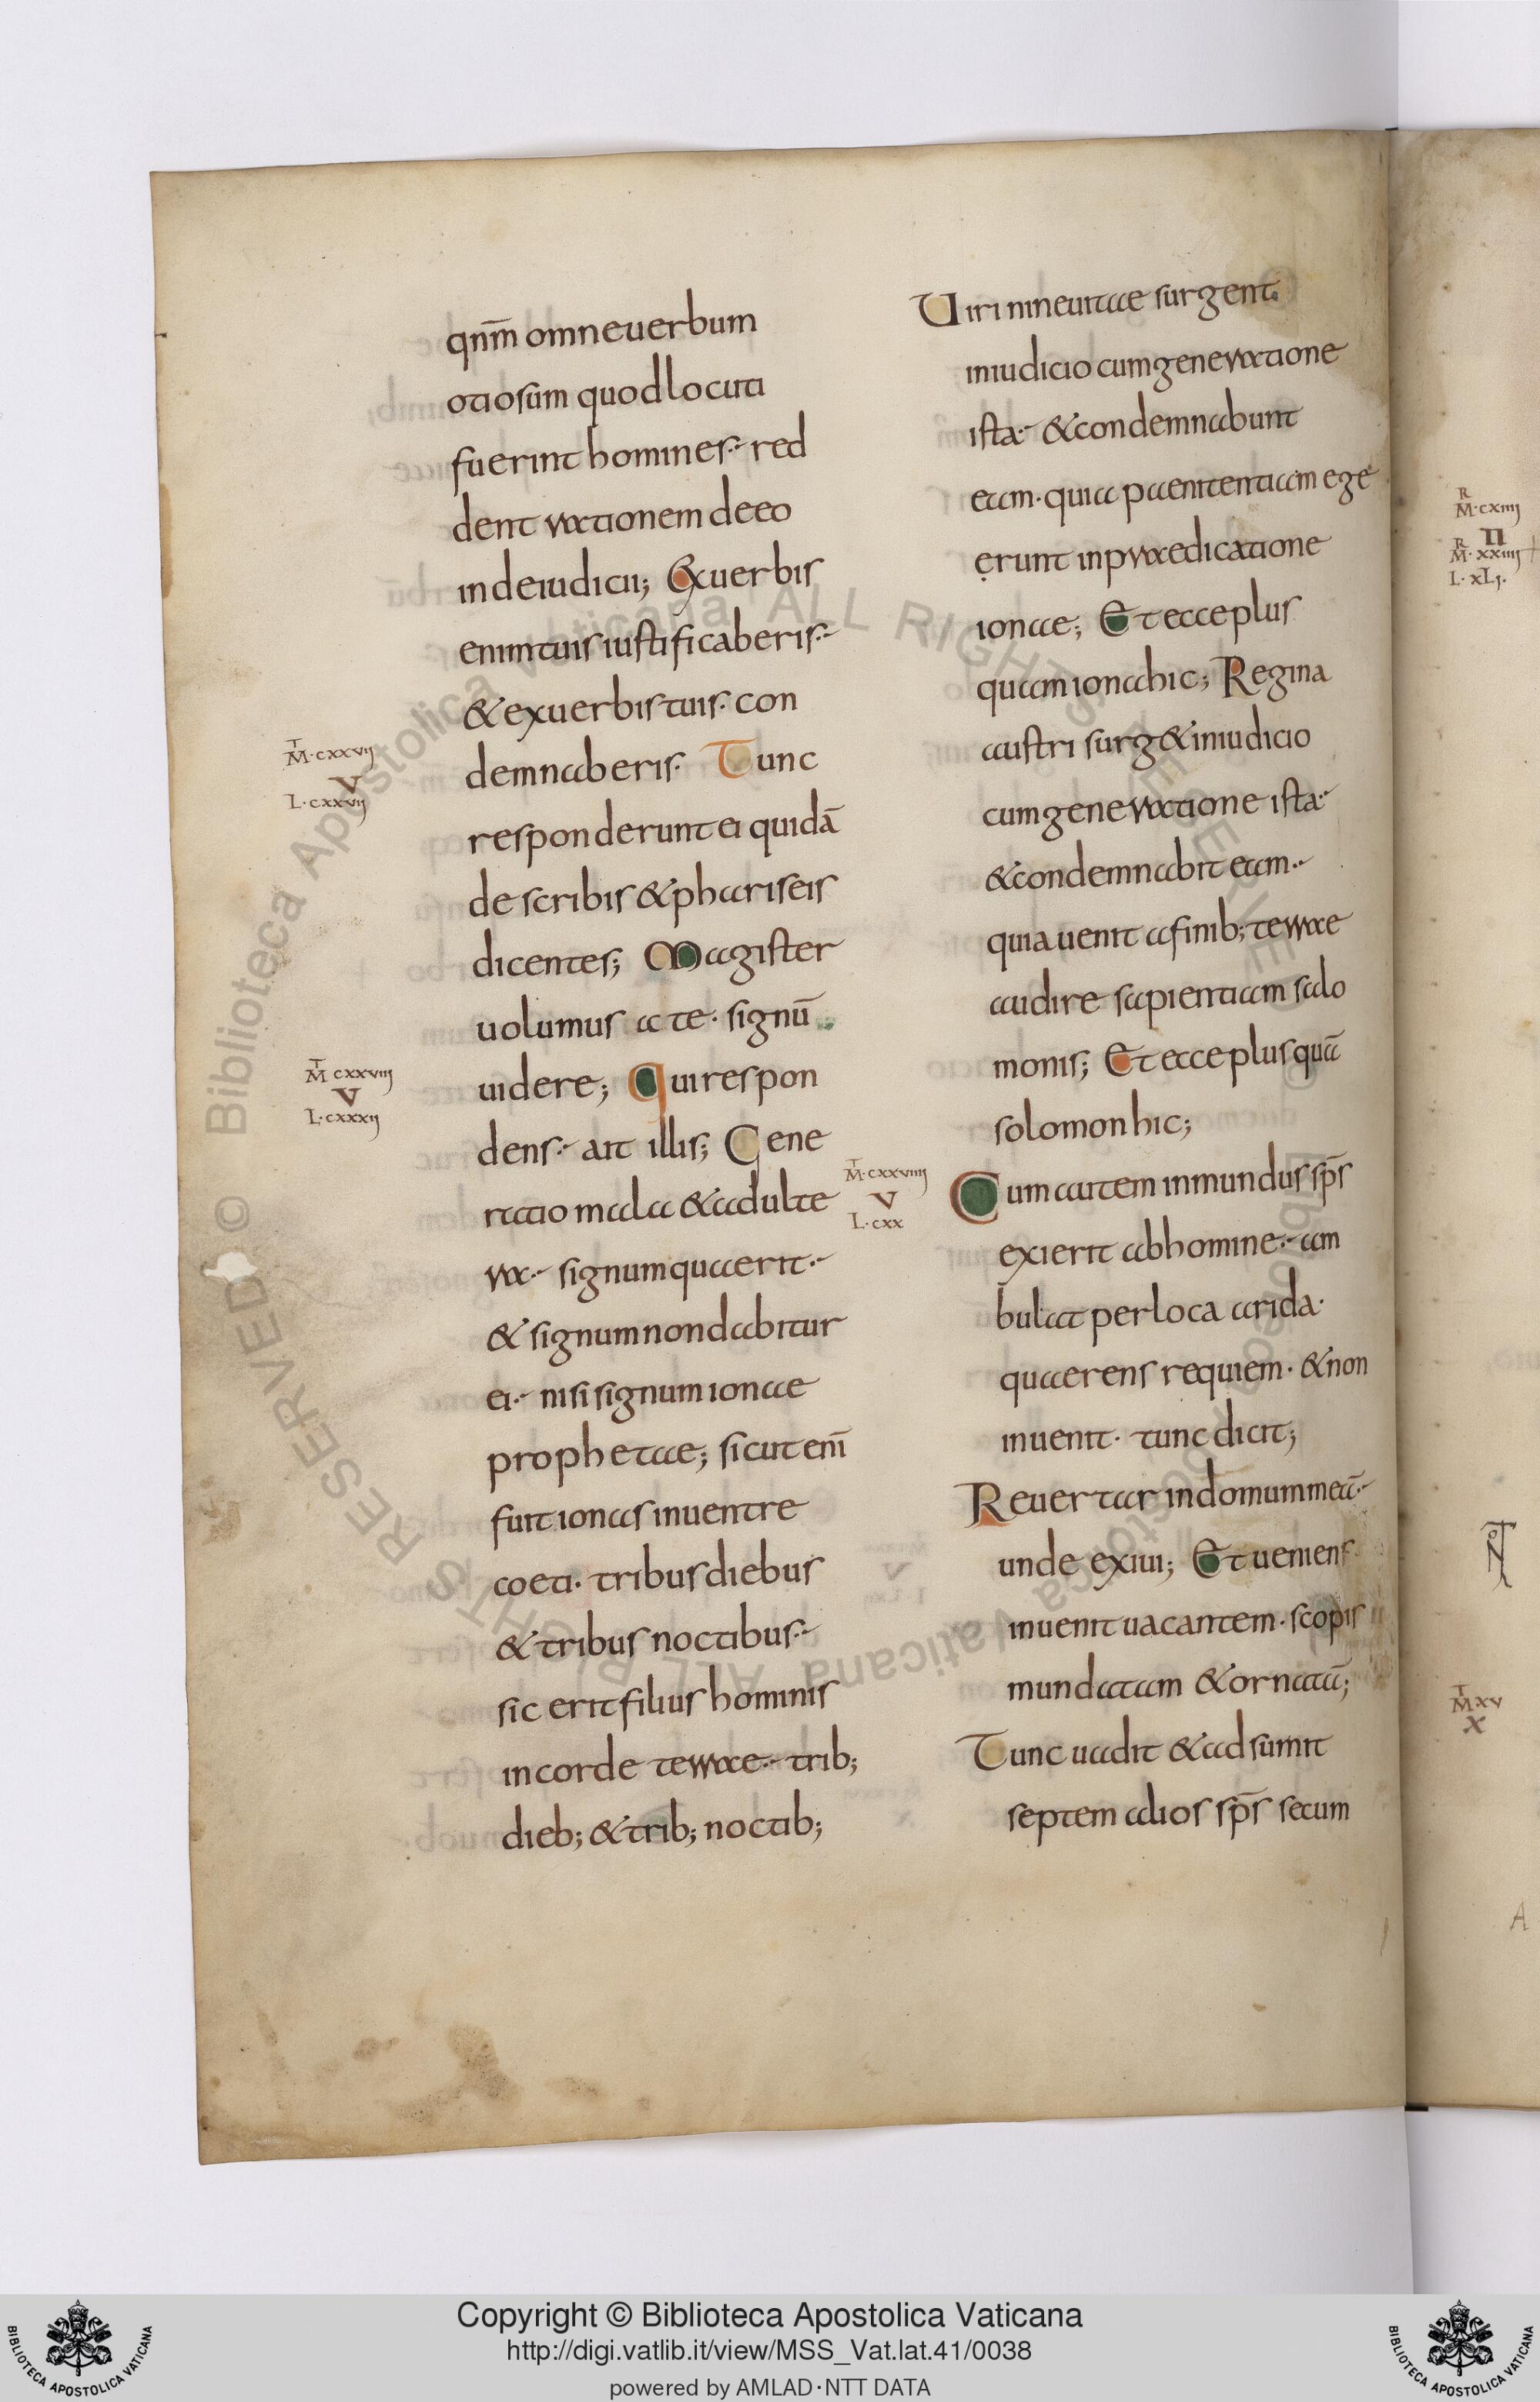 qnm̄ omne uerbum
otiosum quod locuti
fuerint homines· red
dent rationem de eo
in die iudicii; Ex uerbis
enim tuis iustificaberis·
& ex uerbis tuis· con
demnaberis· Tunc
M·cxxvii
V
L·cxxvii
responderunt ei quidā
de scribis & phariseis
dicentes; Magister
uolumus a te· signū
uidere; Qui respon
M cxxviii
V
L·cxxxii
dens· ait illis; Gene
ratio mala & adulte
ra· signum quaerit·
& signum non dabitur
ei· nisi signum ionae
prophetae; sicut enī
fuit ionas in uentre
coeti· tribus diebus
& tribus noctibus·
sic erit filius hominis
in corde terrae· trib;
dieb; & trib; noctib;
Uiri nineuitae surgent
in iudicio cum generatione
ista· & condemnabunt
eam· quia paenitentiam ege
erunt in praedicatione
ionae; Et ecce plus
quam iona hic; Regina
austri surg& in iudicio
cum generatione ista·
& condemnabit eam·
quia uenit a finib; terrae
audire sapientiam salo
monis; Et ecce plus quā
solomon hic;
M·cxxviiii
V
L·cxx
Cum autem inmundus sp̄s
exierit ab homine· am
bulat per loca arida·
quaerens requiem· & non
inuenit· tunc dicit;
Reuertar in domum meā·
unde exiui; Et ueniens
inuenit uacantem· scopis
mundatam & ornatā;
Tunc uadit & adsumit
septem alios sp̄s secum
R
M·cxiiii
II
R
M·xxiiii
L·xLi·
T
M xv
X
A
© Biblioteca Apostolica Vaticana ALL RIGHTS RESERVED
Copyright © Biblioteca Apostolica Vaticana
http://digi.vatlib.it/view/MSS_Vat.lat.41/0038
powered by AMLAD·NTT DATA
BIBLIOTECA APOSTOLICA VATICANA
BIBLIOTECA APOSTOLICA VATICANA